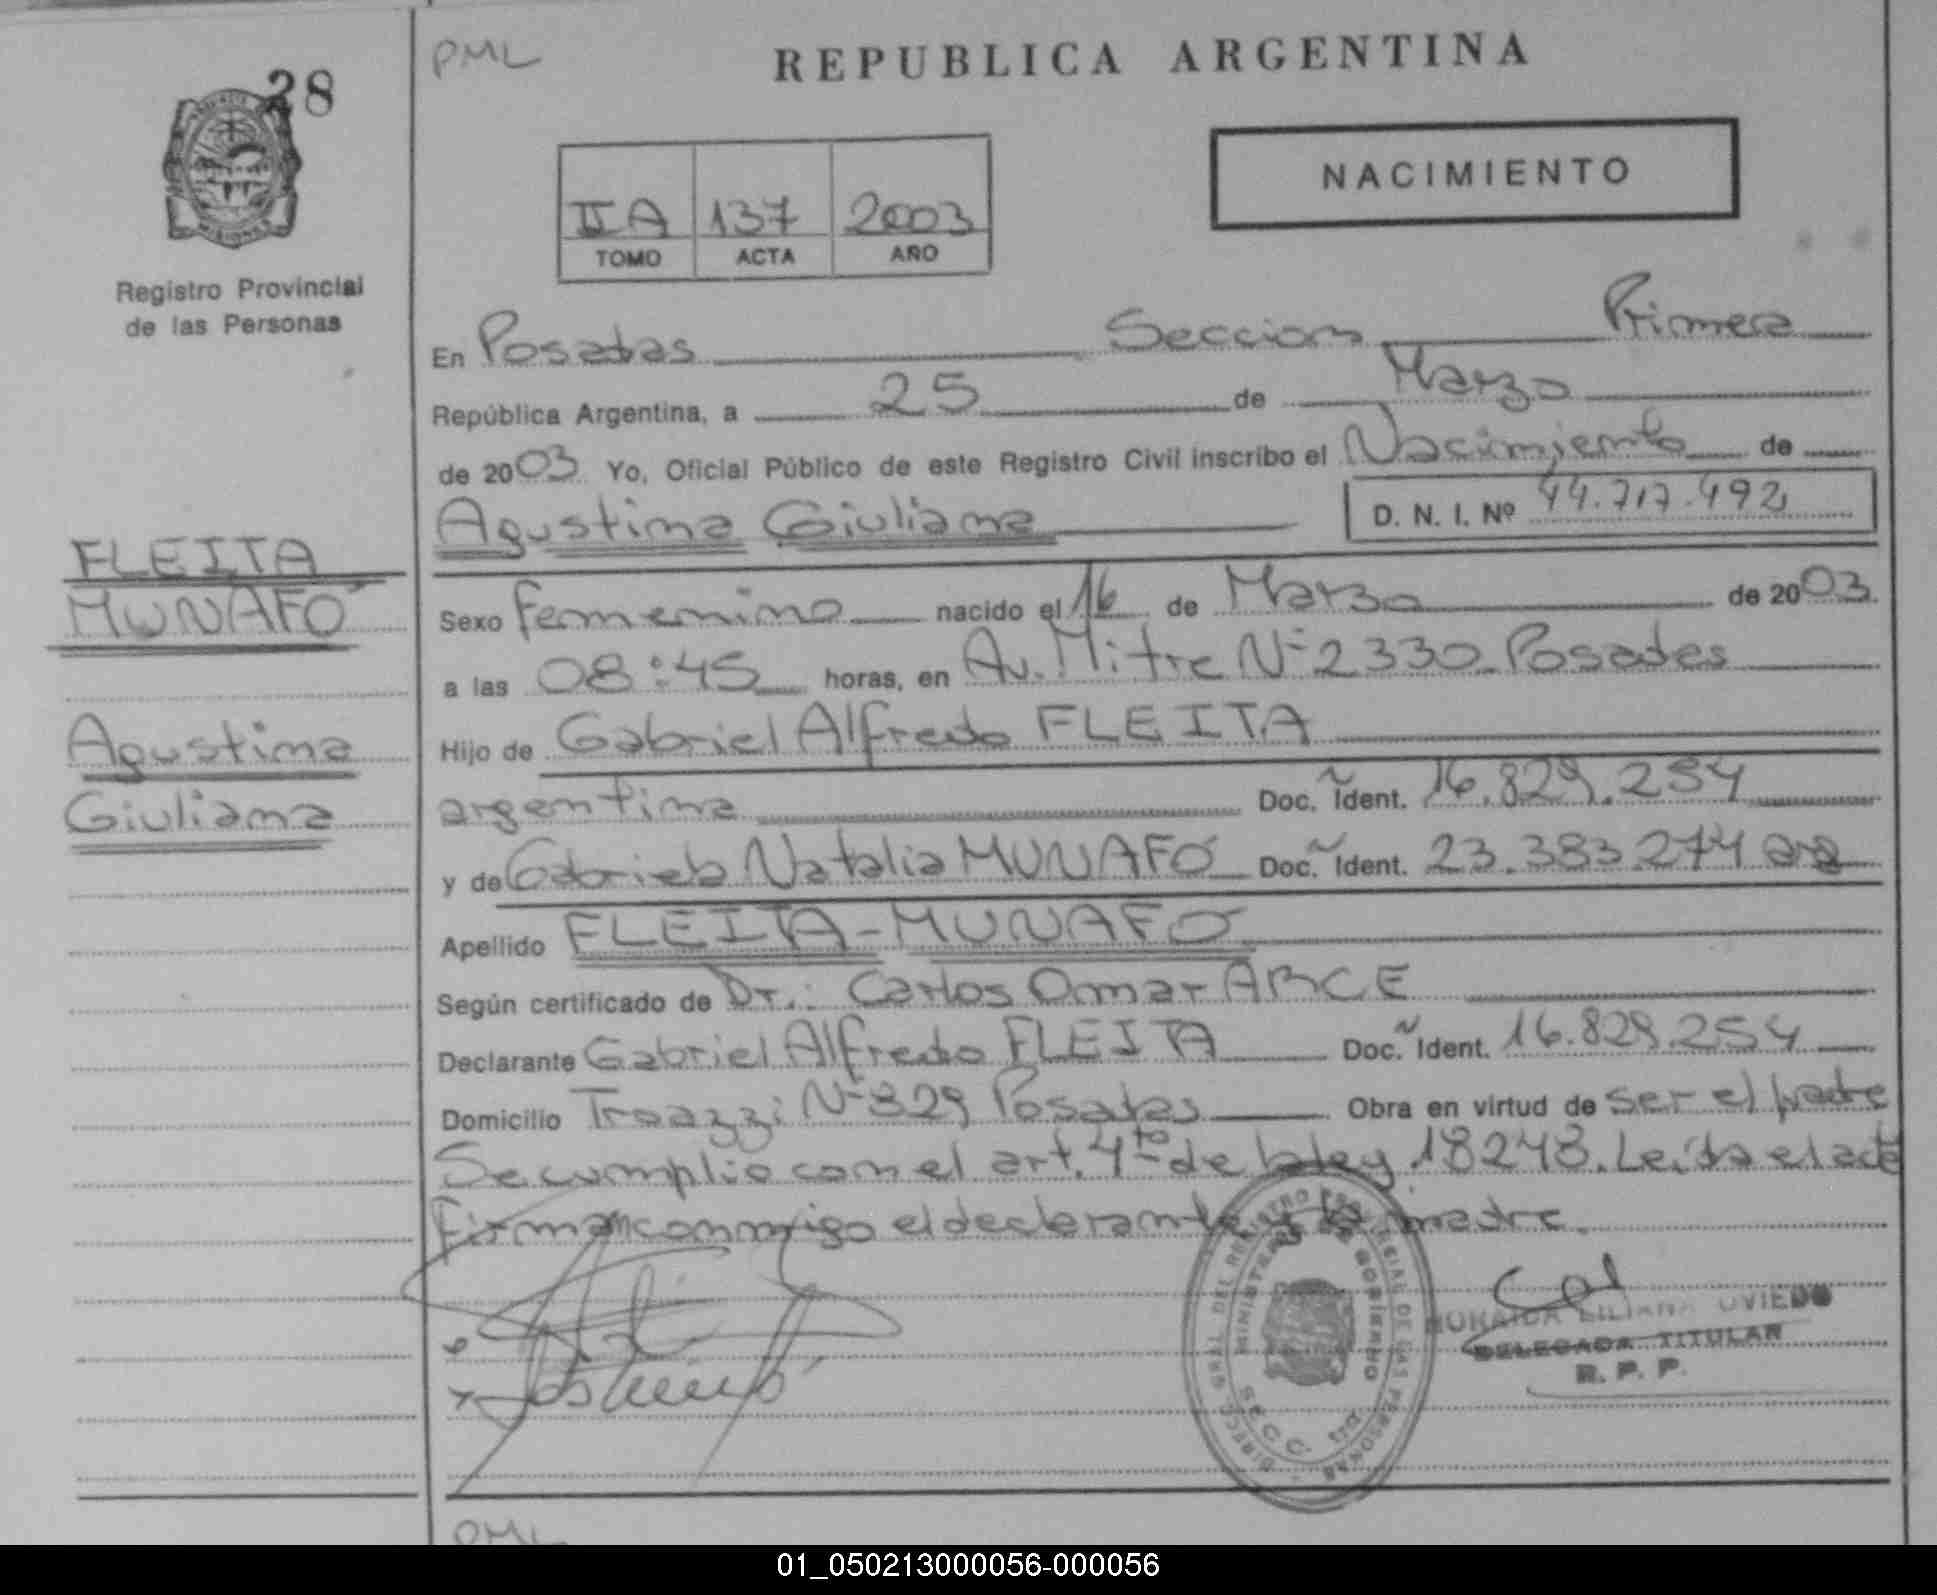 PML
REPUBLICA ARGENTINA
28
MISIONES
NACIMIENTO
IIA 137 2003
TOMO ACTA AÑO
Registro Provincial
de las Personas
En Posadas Seccion Primera
República Argentina, a 25 de Marzo
de 2003 Yo, Oficial Público de este Registro Civil inscribo el Nacimiento de
Agustina Giuliana D. N. I. Nº 44.717.492
FLEITA
MUNAFÓ
Agustina
Giuliana
Sexo femenino nacido el 16 de Marzo de 2003
a las 08:45 horas, en Av. Mitre Nº 2330 Posadas
Hijo de Gabriel Alfredo FLEITA
argentina Doc. Ident. 16.829.254
y de Gabriela Natalia MUNAFÓ Doc. Ident. 23.383.274 arg
Apellido FLEITA-MUNAFÓ
Según certificado de Dr.: Carlos Omar ARCE
Declarante Gabriel Alfredo FLEITA Doc. Ident. 16.829.254
Domicilio Nº 329 Posadas Obra en virtud de ser el padre
Se cumplio con el art. 4to de la ley 18248. Leída el acta
firman conmigo el declarante y la madre.
LILIANA OVIEDO
DELEGADA TITULAR
R. P. P.
MINISTERIO DE GOBIERNO
SECC. 1ra
PML
01_050213000056-000056